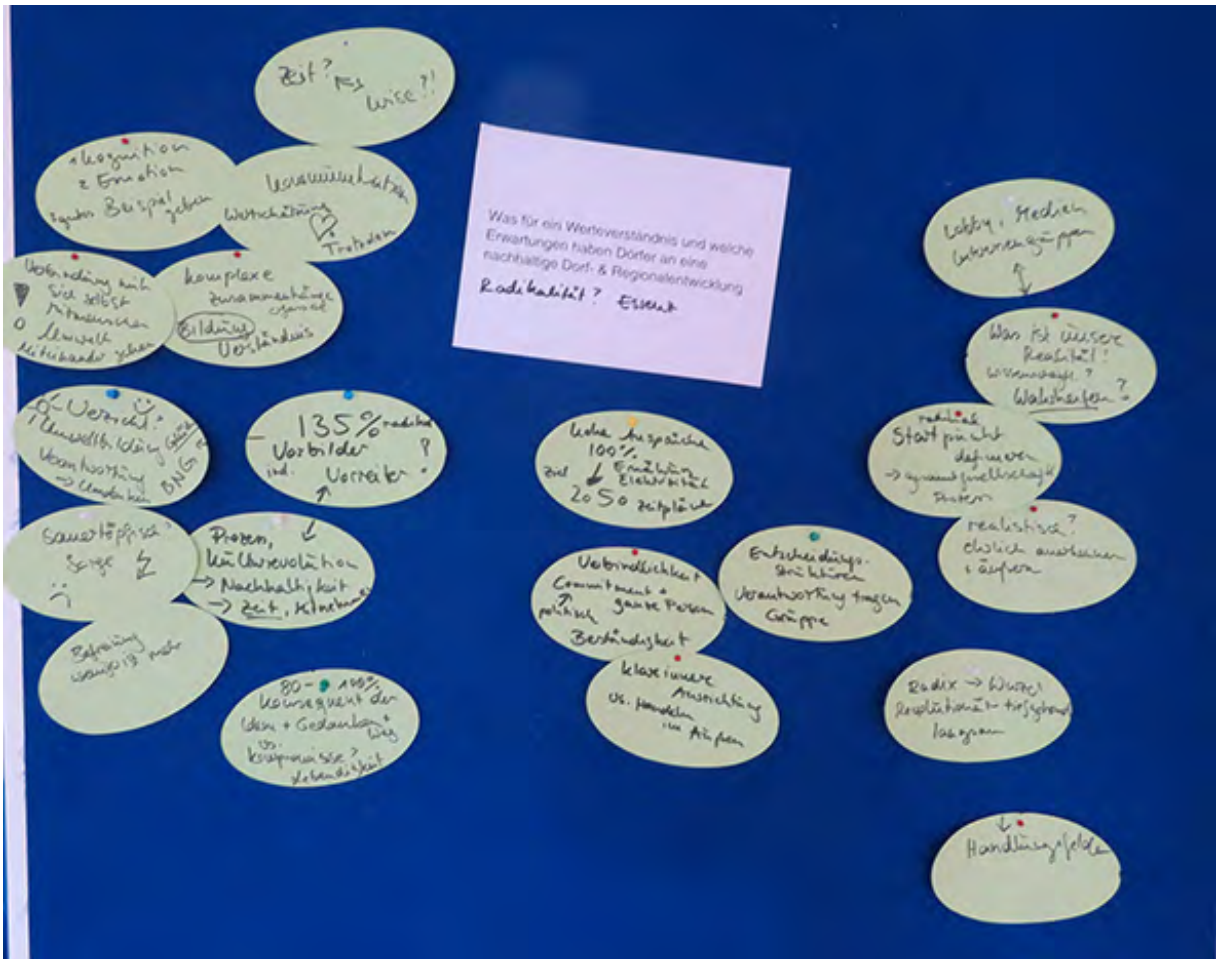 Zeit?
Krise?!
1 Kognition
2 Emotion
3 gutes Beispiel
geben
Kommunikation
Wertschätzung
Trotzdem
Verbindung mit
sich selbst
Mitmenschen
Umwelt
Miteinander gehen
komplexe
Zusammenhänge
Bildung
Verständnis
Verzicht?
Umweltbildung
Verantwortung
→ Umdenken
BNE
- 135% radikal
Vorbilder
ind. Vorreiter
?
Sauertöpfisch?
Sorge
Prozess,
Kulturrevolution
→ Nachhaltigkeit
→ Zeit,
Befreiung
weniger ist mehr
80 - 100%
konsequent der
Ideen + Gedanken +
Weg
vs.
Kompromisse?
Lebendigkeit
Was für ein Werteverständnis und welche
Erwartungen haben Dörfer an eine
nachhaltige Dorf- & Regionalentwicklung
Radikalität? Essenz
hohe Ansprüche
100%
Ernährung
Elektrizität
Ziel
2050 Zeitpläne
Verbindlichkeit
Commitment +
ganze Person
politisch
Beständigkeit
Entscheidungs-
strukturen
Verantwortung tragen
Gruppe
klare innere
Ausrichtung
vs. Handeln
im Außen
Lobby, Medien
Interessengruppen
Was ist unsere
Realität?
Wissenschaft?
Wahrheiten?
Startpunkt
definieren
→ gesamtgesellschaftl.
realistisch?
ehrlich anerkennen
+ äußern
Radix → Wurzel
Revolutionär - tiefgehend
langsam
Handlungsfelder